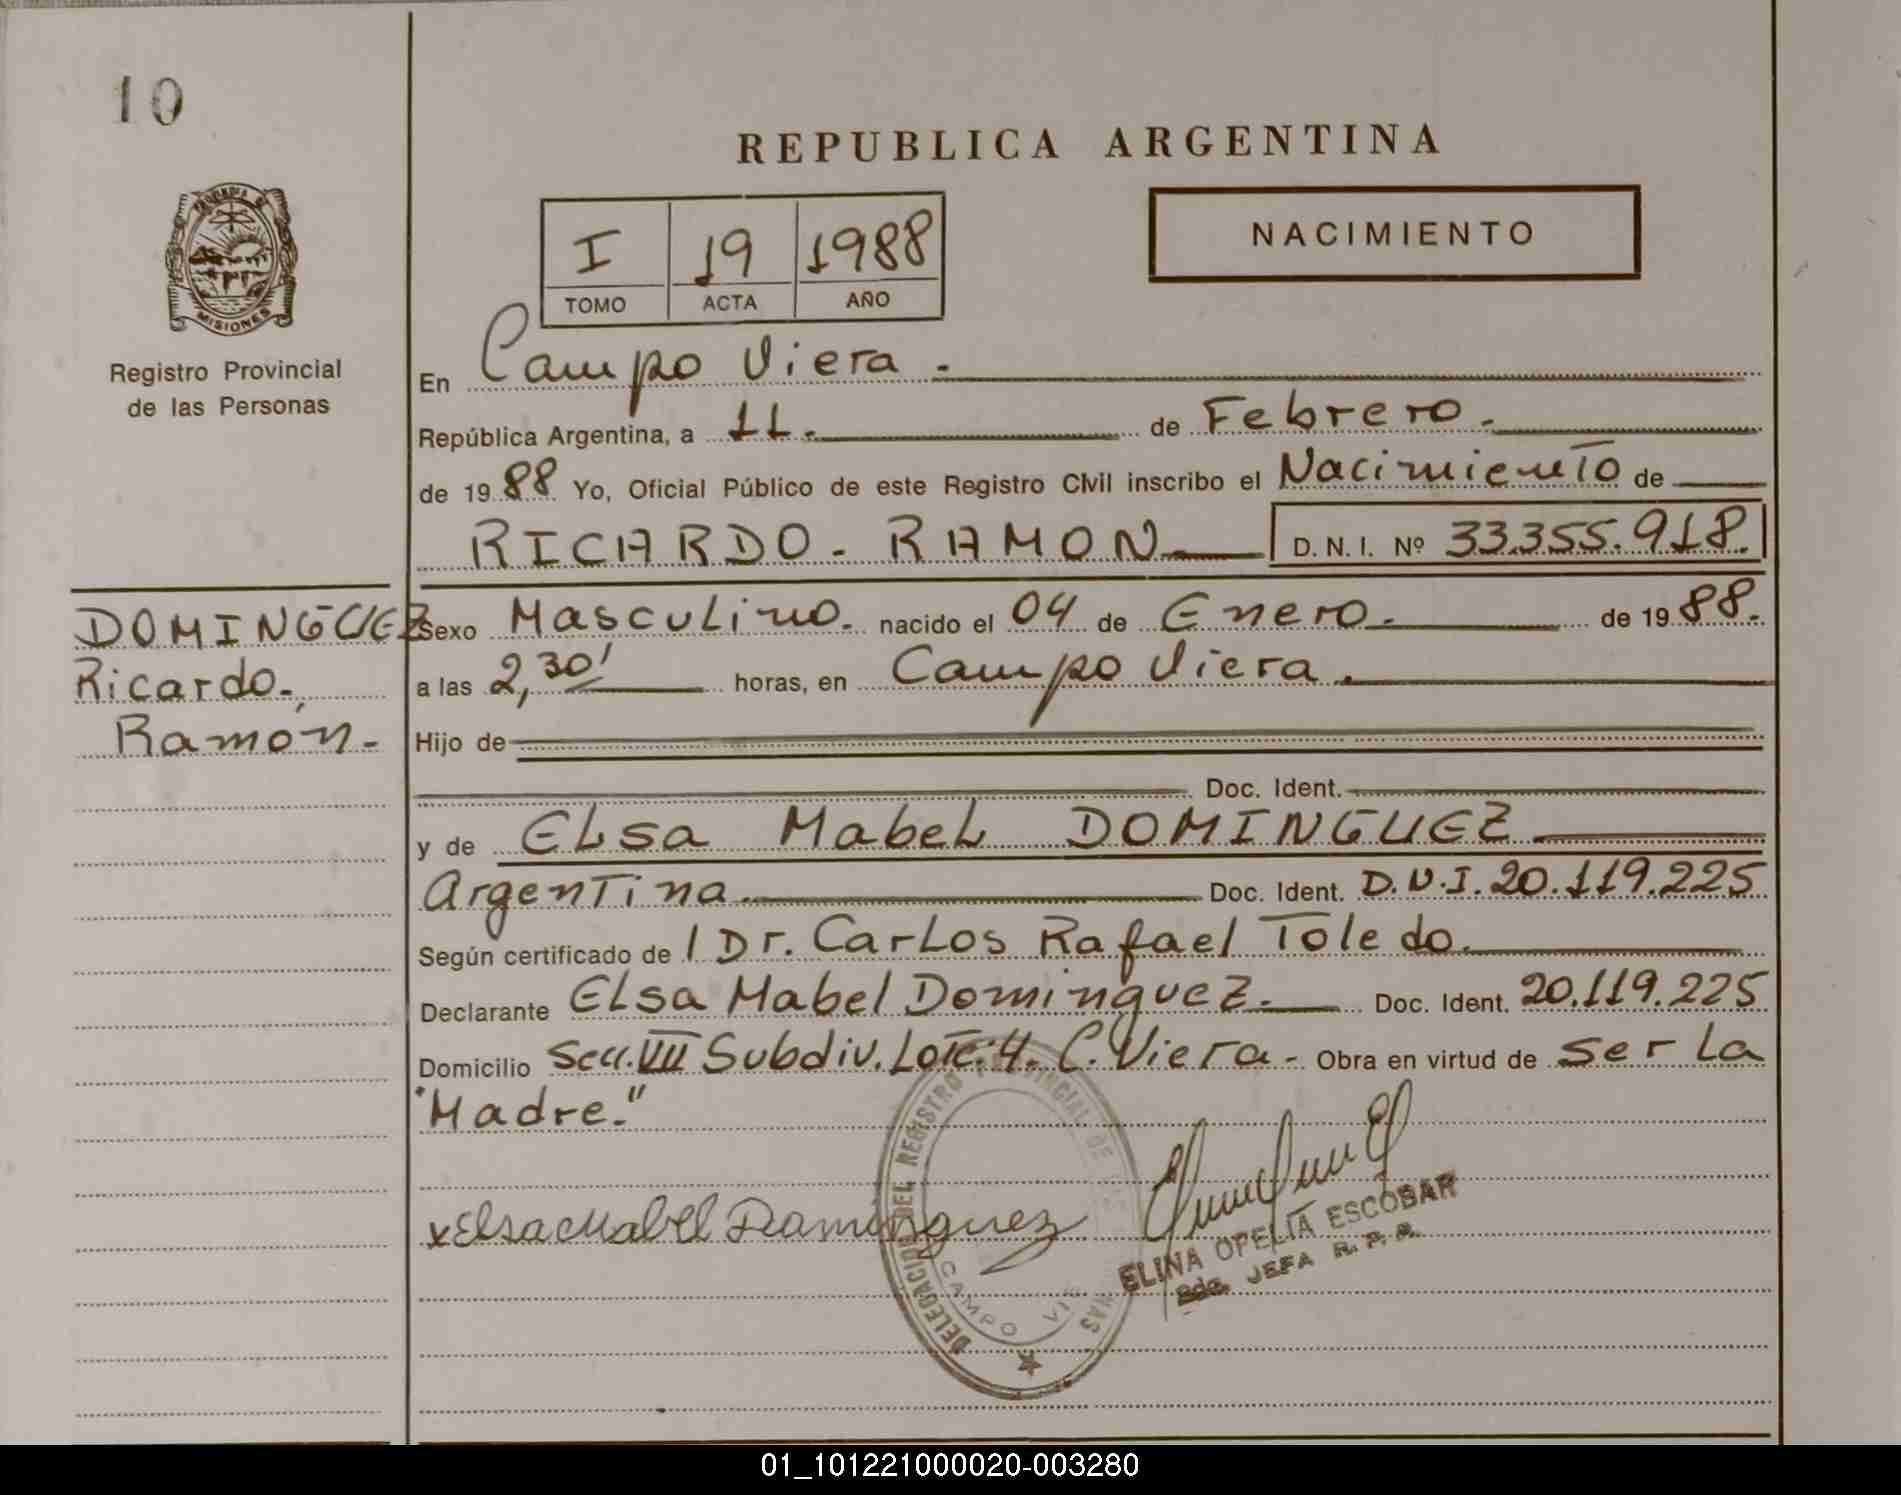 10
REPUBLICA ARGENTINA
PROVINCIA DE
MISIONES
Registro Provincial
de las Personas
I 19 1988
TOMO ACTA AÑO
NACIMIENTO
En Campo Viera.
República Argentina, a 11. de Febrero.
de 1988 Yo, Oficial Público de este Registro Civil inscribo el Nacimiento de
RICARDO - RAMON D.N.I. Nº 33.355.918.
DOMINGUEZ
Ricardo.
Ramón.
Sexo Masculino. nacido el 04 de Enero. de 1988.
a las 2,30' horas, en Campo Viera.
Hijo de
Doc. Ident.
y de ELsa MabeL DOMINGUEZ
Argentina Doc. Ident. D.N.I. 20.119.225
Según certificado de / Dr. CarLos Rafael Toledo.
Declarante ELsa Mabel DomingueZ. Doc. Ident. 20.119.225
Domicilio Secc. VII Subdiv. Lote: 4. C. Viera - Obra en virtud de ser La
"Madre."
x Elsa Mabel Dominguez
DELEGACION DEL REGISTRO PROVINCIAL DE
CAMPO
ELINA OFELIA ESCOBAR
JEFA R. P. P.
01_101221000020-003280